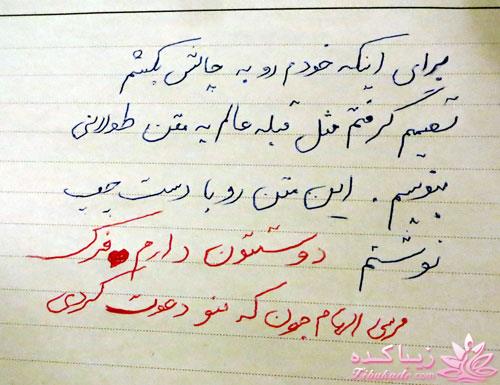 برای اینکه خودم رو به چالش بکشم
تصمیم گرفتم مثل قبله عالم یه متن طولانی
بنویسم. این متن رو با دست چپ
نوشتم دوستتون دارم
مرسی الهام جون که منو دعوت کردی
زیباکده
Zibakade.com